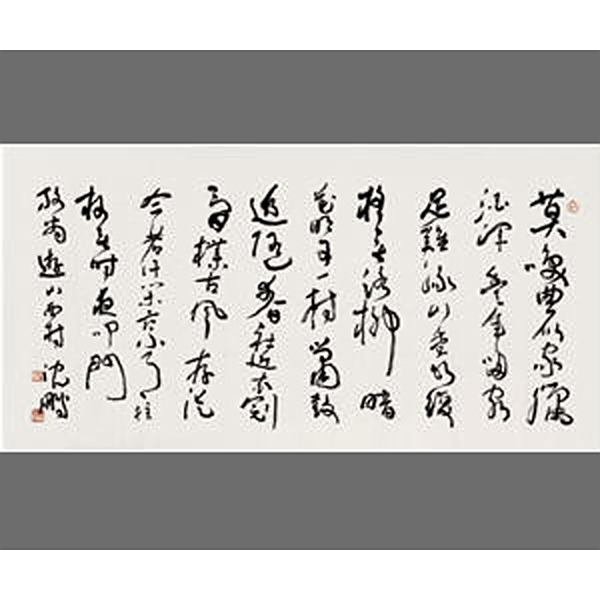 莫笑農家臘
酒渾豐年留客
足雞豚山重水複
疑無路柳暗
花明又一村簫鼓
追隨春社近衣冠
簡樸古風存從
今若許閒乘月拄
杖無時夜叩門
放翁遊山西村 沈鵬